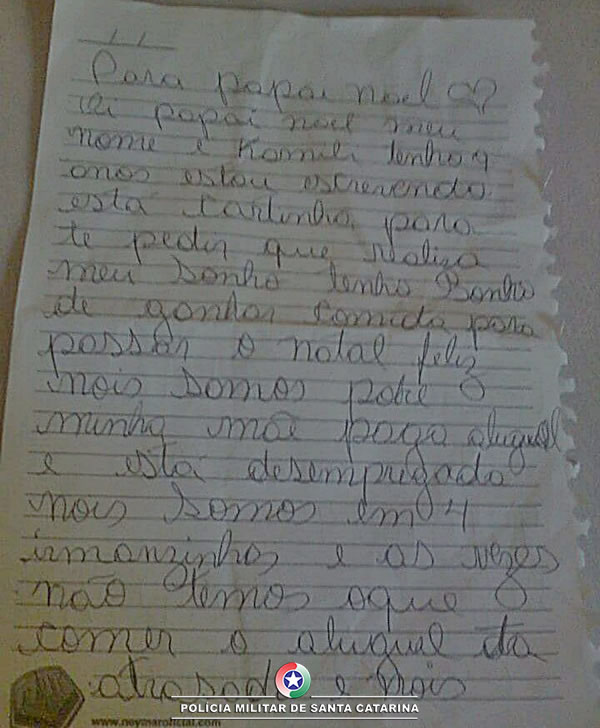 / /
Para papai noel
Oi papai noel meu
nome é Kamili tenho 9
anos estou escrevendo
está cartinha para
te pedir que realiza
meu sonho tenho Sonho
de ganhar comida para
passar o natal feliz
nois somos pobre
minha mãe paga alugual
e está desempregada
nois somos em 4
irmanzinhos e as vezes
não temos oque
comer o alugual ta
atrasado e nois
POLÍCIA MILITAR DE SANTA CATARINA
www.neymaroficial.com